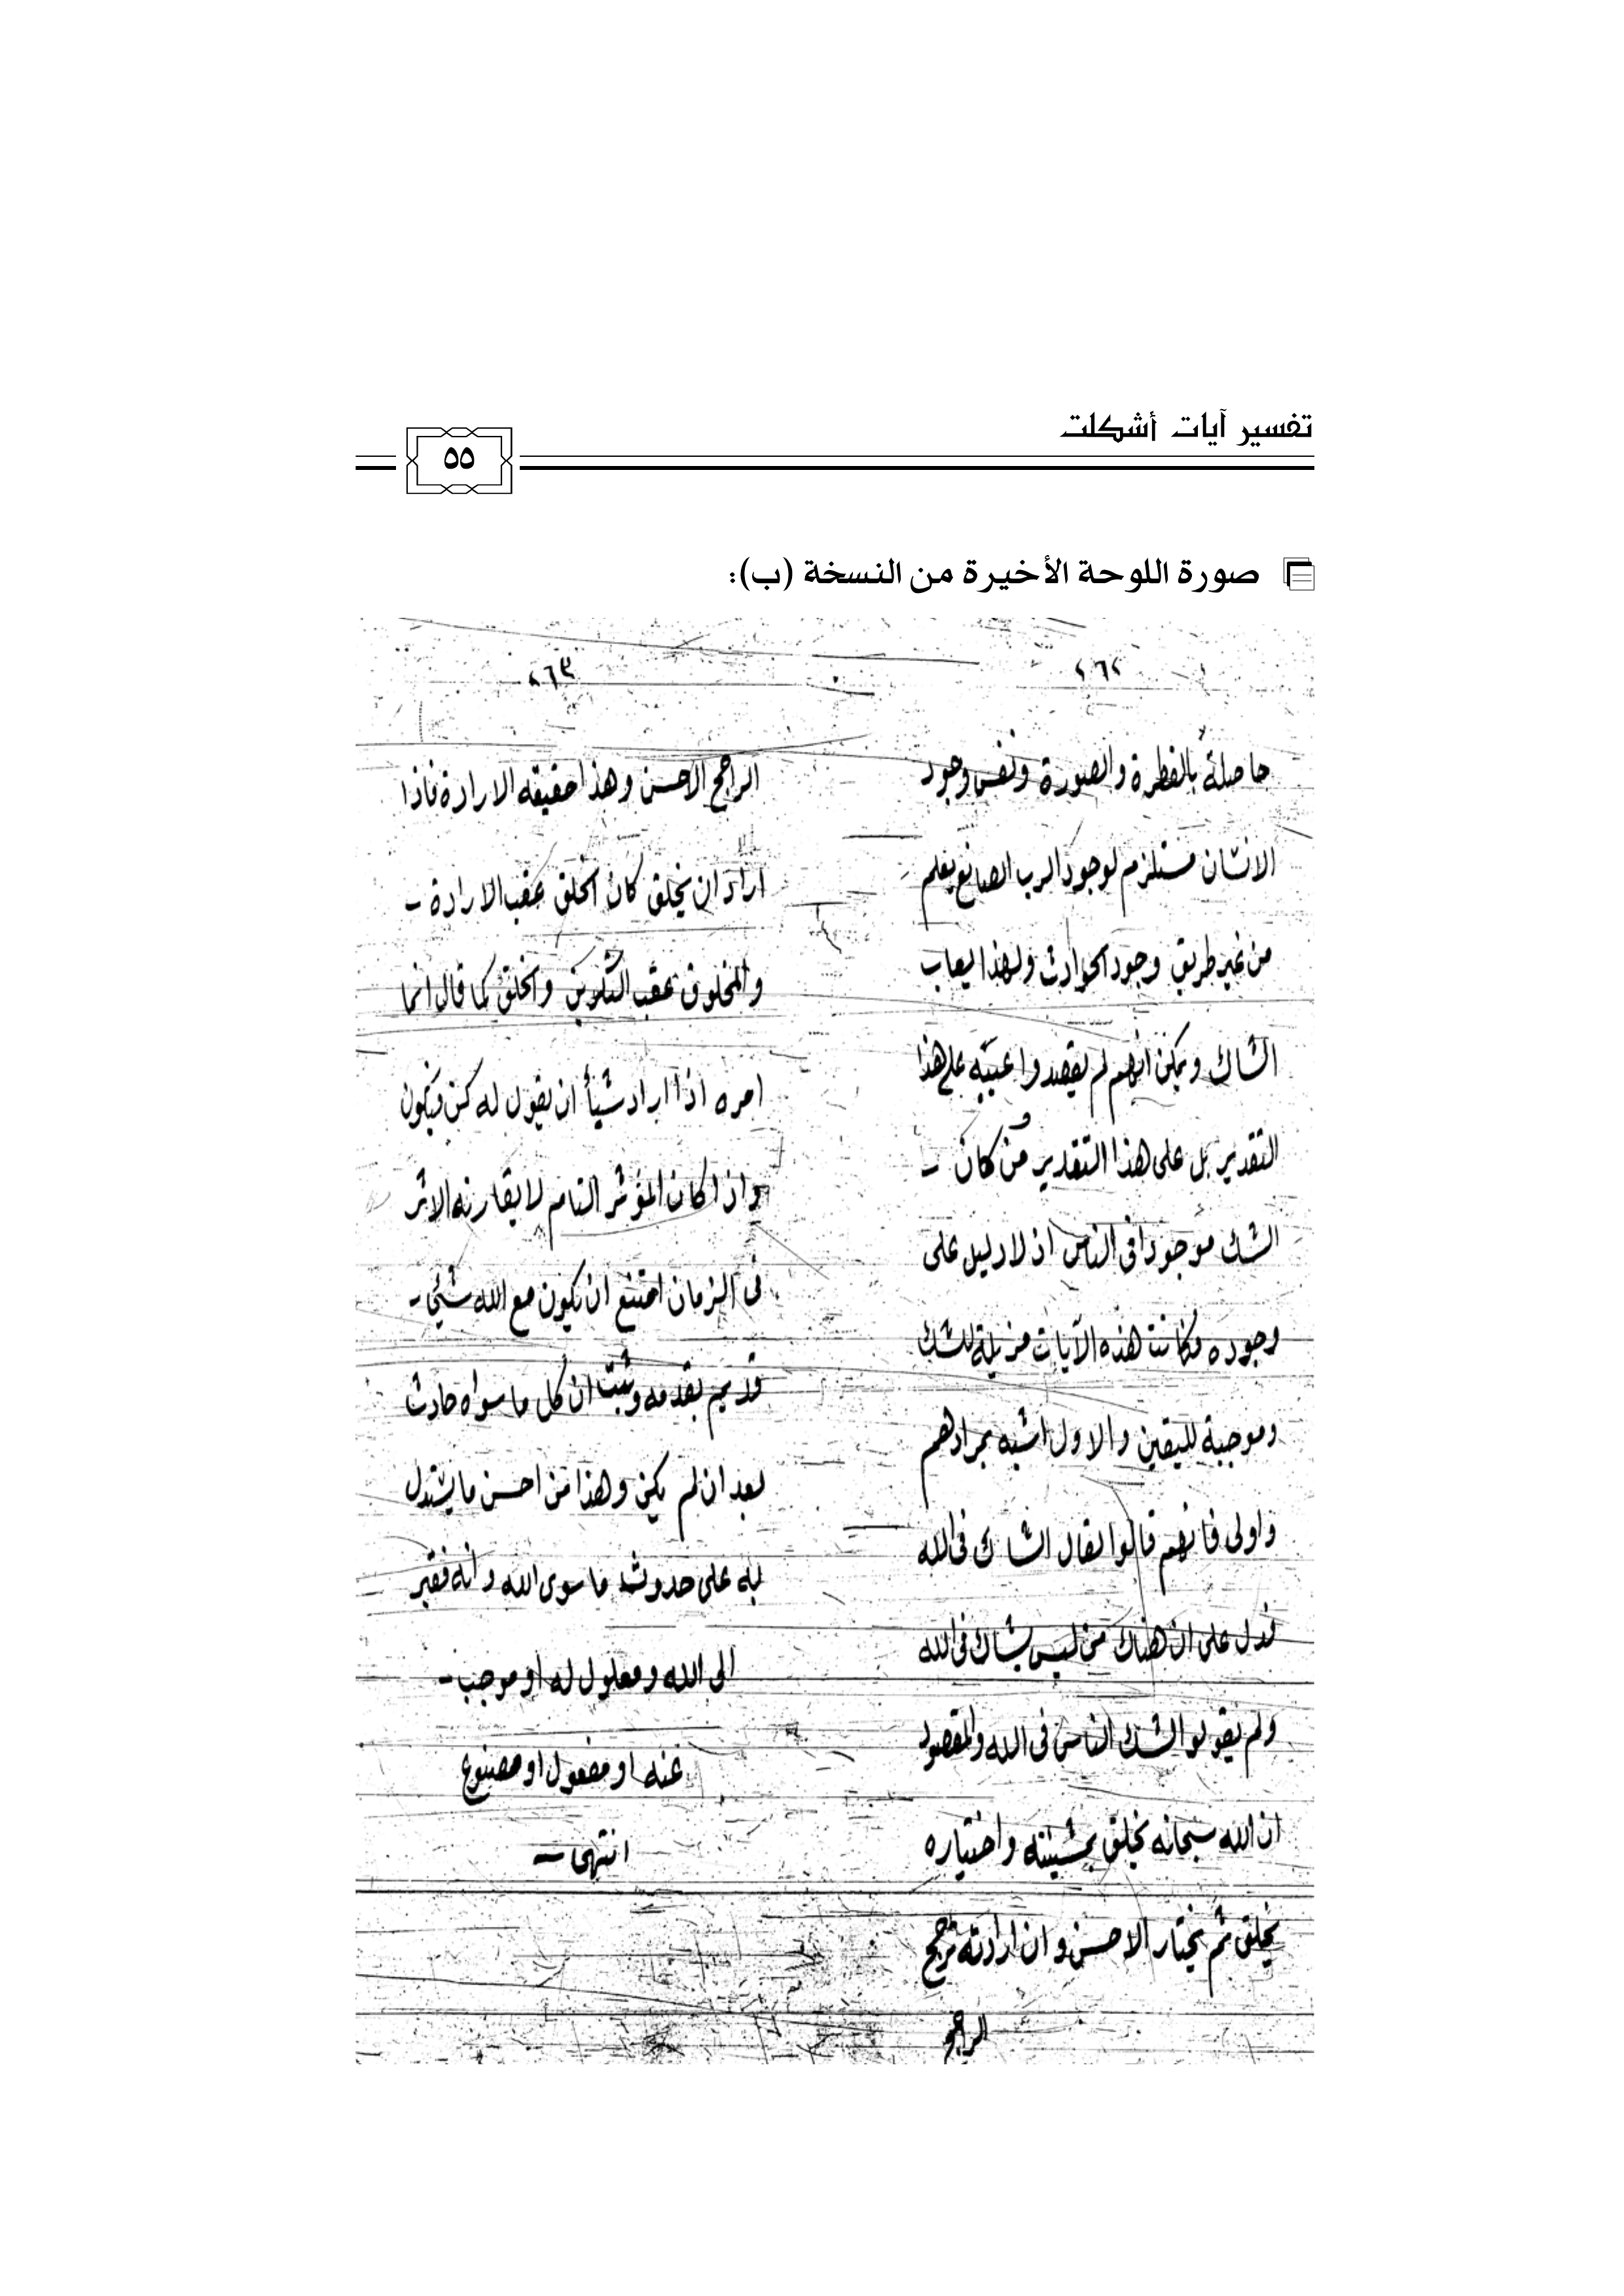 تفسير آيات أشكلت
٥٥
صورة اللوحة الأخيرة من النسخة (ب):
٢٦٢
حاصلة بالفطرة والصورة ونفس وجود
الانسان مستلزم لوجود الرب الصانع يعلم
من غير طريق وجود الحوادث ولهذا يعاب
الشاك ويمكن انهم لم يقصدوا عيبه على هذا
التقدير بل على هذا التقدير من كان -
الشك موجودا في الناس اذ لا دليل على
وجوده وكانت هذه الآيات مزيلة للشك
وموجبة لليقين والاول اشبه بمرادهم
واولى فانهم قالوا يقال الشاك في الله
فدل على ان هناك من ليس بشاك في الله
ولم يقولوا لشك الناس في الله والمقصود
ان الله سبحانه يخلق بمشيئته واختياره
يخلق ثم يختار الاحسن وان ارادته ترجح
الراجح
٢٦٣
الراجح الاحسن وهذا حقيقه الارادة فاذا
اراد ان يخلق كان الخلق عقب الارادة -
والمخلوق عقب التكوين والخلق كما قال انما
امره اذا اراد شيأ ان يقول له كن فيكون
واذا كان المؤثر التام لا يقارنه الاثر
فى الزمان امتنع ان يكون مع الله شئي -
قديم بقدمه وثبت ان كل ما سواه حادث
بعد ان لم يكن وهذا من احسن ما يستدل
به على حدوث ما سوى الله وانه فقير
الى الله ومعلول له او موجب -
عنه او مفعول او مصنوع
انتهى -